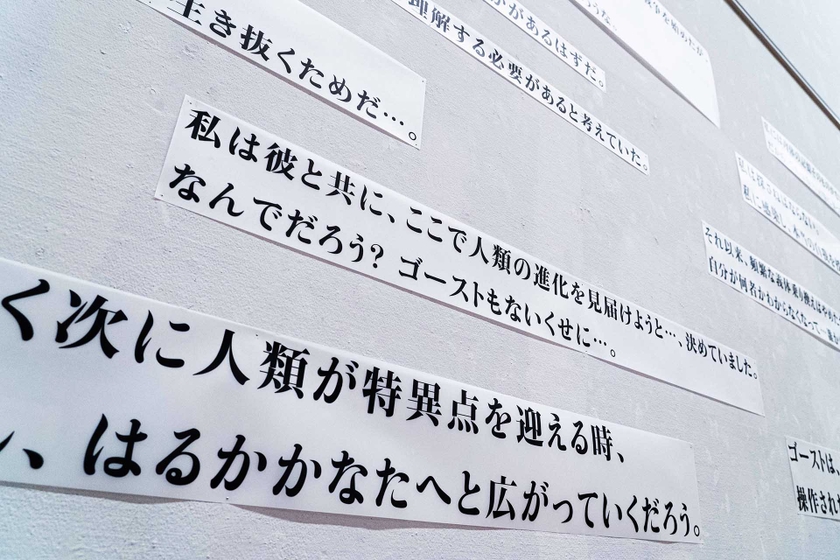 生き抜くためだ…。
理解する必要があると考えていた。
があるはずだ。
私は彼と共に、ここで人類の進化を見届けようと…、決めていました。
なんでだろう？ ゴーストもないくせに…。
く次に人類が特異点を迎える時、
、はるかかなたへと広がっていくだろう。
それ以来、頻繁な義体乗り換えは
自分が何者かわからなくなって
ゴーストは、
操作され